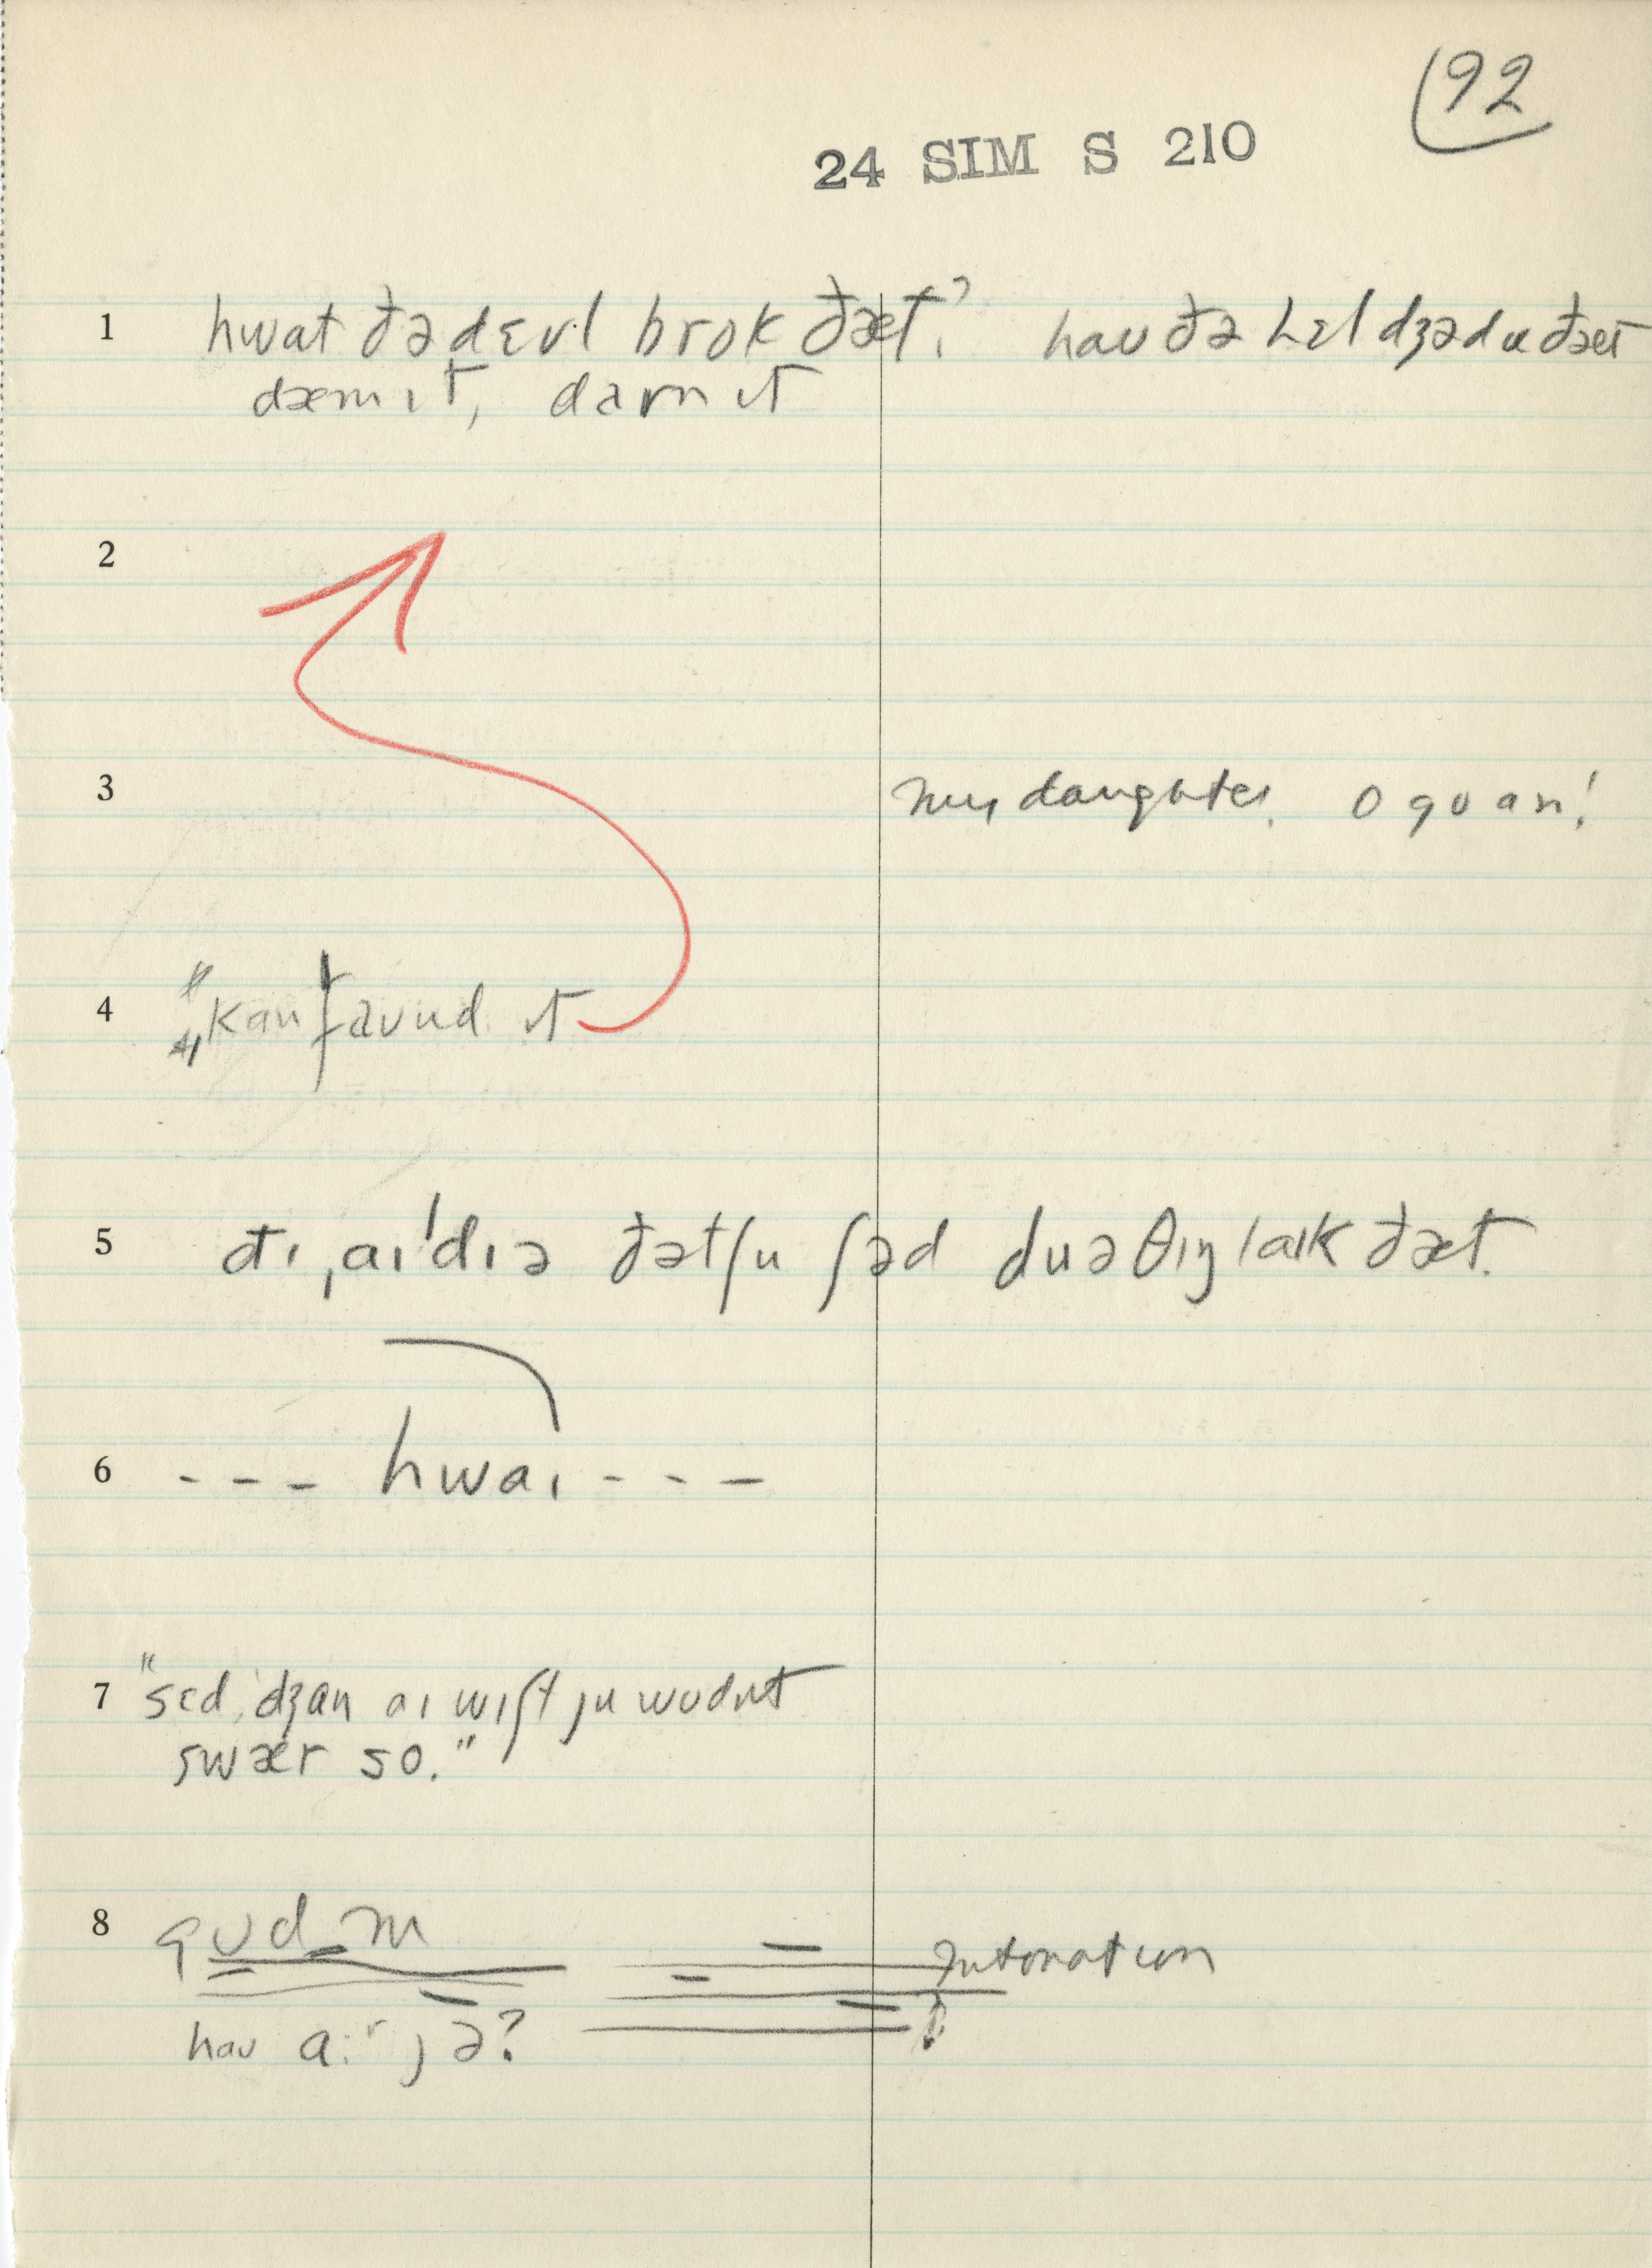 92
24 SIM S 210
1 hwat ðə dɛvl brok ðæt? haʊ ðə hɛl dʒə du ðæt
dæm ɪt, darn ɪt
2
3 my daughter. o gʊ an!
4 "kanfaʊnd ɪt
5 ðɪ ˌaɪˈdɪə ðət ʃu ʃəd du ə θɪŋ laɪk ðæt.
6 --- hwaɪ ---
7 "sɛd, dʒan aɪ wɪʃt ju wʊdnt
swær so."
8 gʊd m
Intonation
haʊ a:r jə?